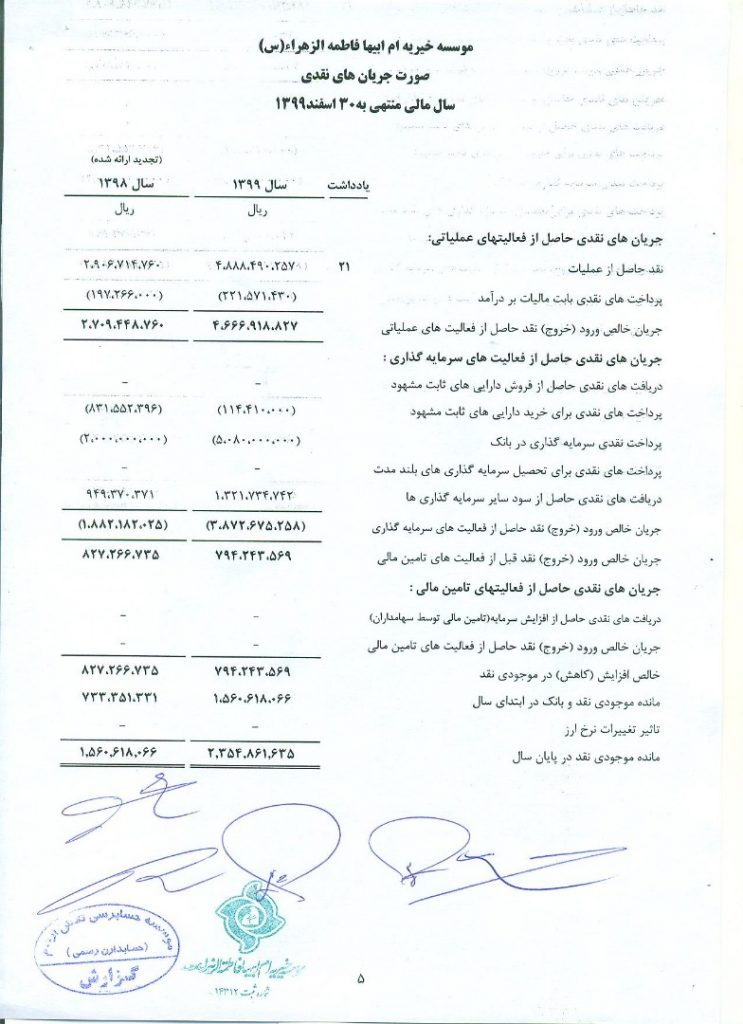 موسسه خیریه ام ابیها فاطمه الزهراء(س)
صورت جریان های نقدی
سال مالی منتهی به ۳۰ اسفند۱۳۹۹
(تجدید ارائه شده)
یادداشت سال ۱۳۹۹ سال ۱۳۹۸
ریال ریال
جریان های نقدی حاصل از فعالیتهای عملیاتی:
نقد حاصل از عملیات ۲۱ ۴،۸۸۸،۴۹۰،۲۵۷ ۲،۹۰۶،۷۱۴،۷۶۰
پرداخت های نقدی بابت مالیات بر درآمد (۲۲۱،۵۷۱،۴۳۰) (۱۹۷،۲۶۶،۰۰۰)
جریان خالص ورود (خروج) نقد حاصل از فعالیت های عملیاتی ۴،۶۶۶،۹۱۸،۸۲۷ ۲،۷۰۹،۴۴۸،۷۶۰
جریان های نقدی حاصل از فعالیت های سرمایه گذاری :
دریافت های نقدی حاصل از فروش دارایی های ثابت مشهود - -
پرداخت های نقدی برای خرید دارایی های ثابت مشهود (۱۱۴،۴۱۰،۰۰۰) (۸۳۱،۵۵۲،۳۹۶)
پرداخت نقدی سرمایه گذاری در بانک (۵،۰۸۰،۰۰۰،۰۰۰) (۲،۰۰۰،۰۰۰،۰۰۰)
پرداخت های نقدی برای تحصیل سرمایه گذاری های بلند مدت - -
دریافت های نقدی حاصل از سود سایر سرمایه گذاری ها ۱،۳۲۱،۷۳۴،۷۴۲ ۹۴۹،۳۷۰،۳۷۱
جریان خالص ورود (خروج) نقد حاصل از فعالیت های سرمایه گذاری (۳،۸۷۲،۶۷۵،۲۵۸) (۱،۸۸۲،۱۸۲،۰۲۵)
جریان خالص ورود (خروج) نقد قبل از فعالیت های تامین مالی ۷۹۴،۲۴۳،۵۶۹ ۸۲۷،۲۶۶،۷۳۵
جریان های نقدی حاصل از فعالیتهای تامین مالی :
دریافت های نقدی حاصل از افزایش سرمایه(تامین مالی توسط سهامداران) - -
جریان خالص ورود (خروج) نقد حاصل از فعالیت های تامین مالی - -
خالص افزایش (کاهش) در موجودی نقد ۷۹۴،۲۴۳،۵۶۹ ۸۲۷،۲۶۶،۷۳۵
مانده موجودی نقد و بانک در ابتدای سال ۱،۵۶۰،۶۱۸،۰۶۶ ۷۳۳،۳۵۱،۳۳۱
تاثیر تغییرات نرخ ارز - -
مانده موجودی نقد در پایان سال ۲،۳۵۴،۸۶۱،۶۳۵ ۱،۵۶۰،۶۱۸،۰۶۶
موسسه حسابرسی
(حسابداران رسمی)
گزارش
موسسه خیریه ام ابیها فاطمة الزهراء
شماره ثبت ۱۴۳۱۲
۵